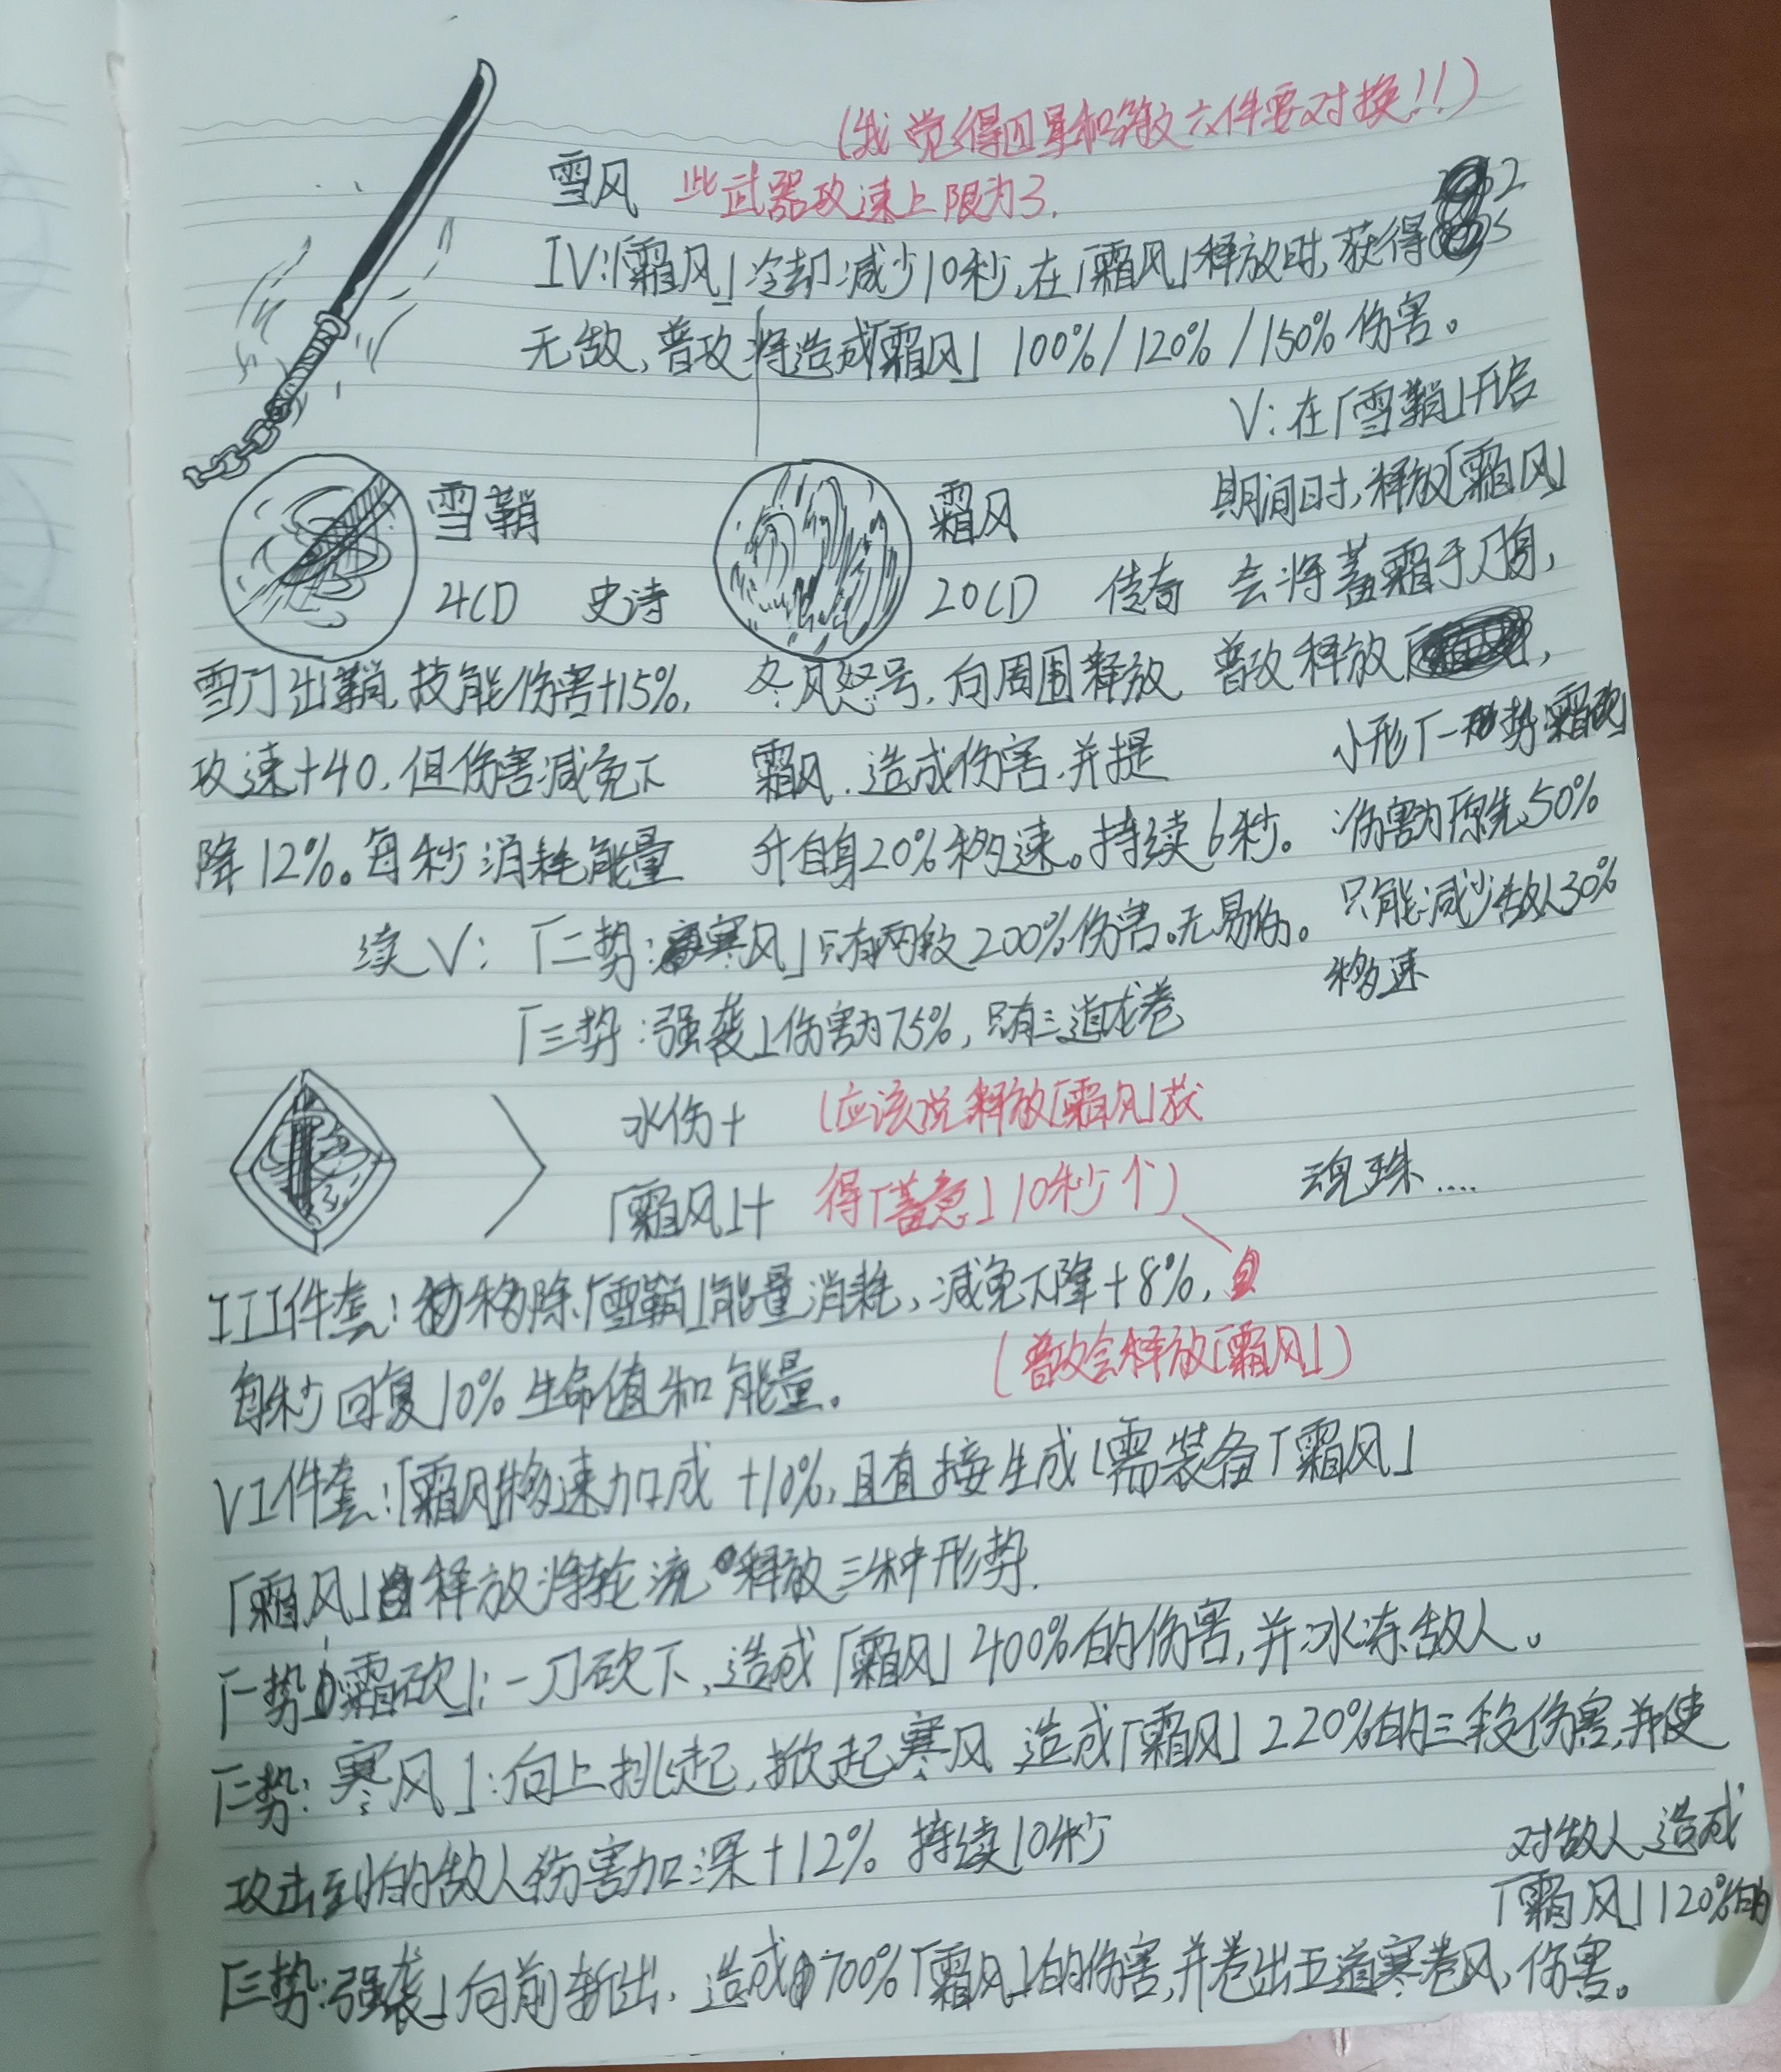 (我觉得四星和第六件要对换!!)
雪风 此武器攻速上限为3.
IV:「霜风」冷却减少10秒,在「霜风」释放时,获得2s
无敌,普攻将造成「霜风」100%/120%/150%伤害。
V:在「雪鞘」开启
期间时,释放「霜风」
会将蓄霜于刀身,
普攻释放
小形「一势:霜砍」
伤害为「原先」50%
只能减少敌人30%
移速
雪鞘
4CD 史诗
雪刀出鞘,技能伤害+15%,
攻速+40,但伤害减免下
降12%。每秒消耗能量
霜风
20CD 传奇
冬风怒号,向周围释放
霜风.造成伤害,并提
升自身20%移速。持续6秒。
续V:「二势:寒风」只有两段200%伤害。无易伤。
「三势:强袭」伤害为75%,只有三道龙卷
水伤+
「霜风」+
(应该说释放「霜风」获
得「蓄意」10秒个)
魂珠....
III件套:移除「雪鞘」能量消耗,减免下降+8%,
每秒回复10%生命值和能量。
(普攻会释放「霜风」)
VI件套:「霜风」移速加成+10%,且直接生成(需装备「霜风」
「霜风」释放将轮流释放三种形势.
「一势:霜砍」:一刀砍下,造成「霜风」400%的伤害,并冰冻敌人。
「二势:寒风」:向上挑起,掀起寒风 造成「霜风」220%的三段伤害,并使
攻击到的敌人伤害加深+12% 持续10秒
「三势:强袭」向前斩出,造成700%「霜风」的伤害,并卷出五道寒卷风,
对敌人造成
「霜风」120%的
伤害。